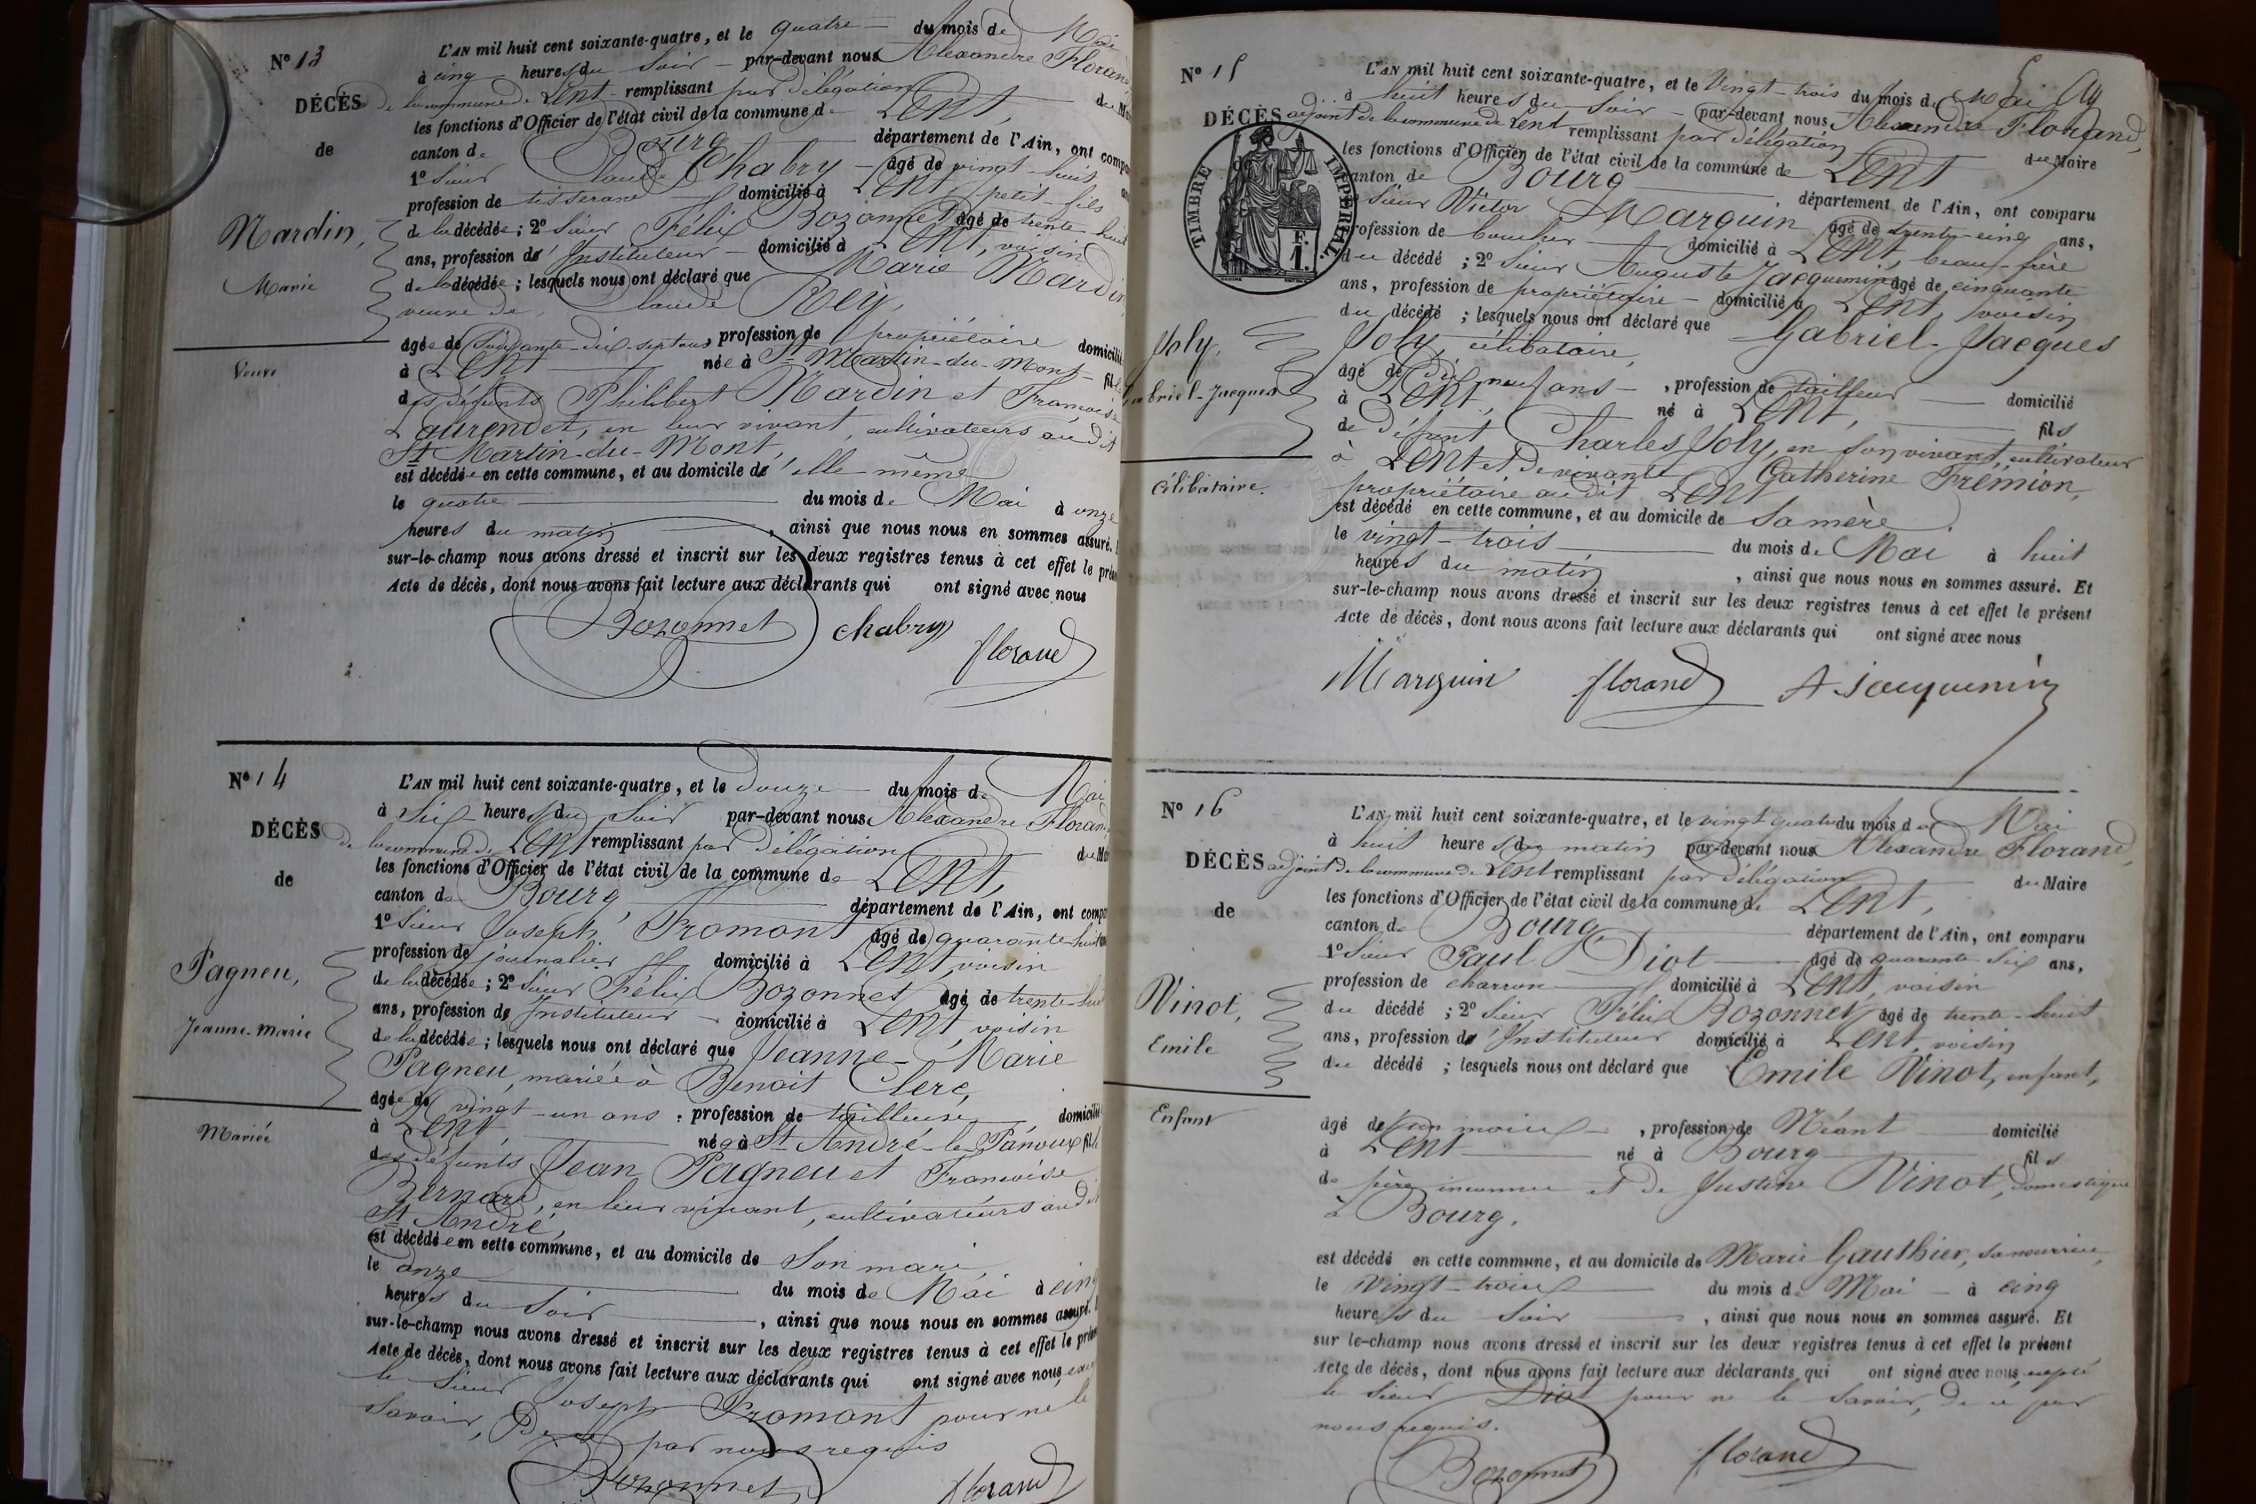 Nº 13
DÉCÈS
de
Mardin,
Marie
Veuve
L'AN mil huit cent soixante-quatre, et le quatre du mois de Mai
à cinq heures du soir par-devant nous Alexandre Florand
de la commune de Lent remplissant par délégation du
les fonctions d'Officier de l'état civil de la commune de Lent,
canton de Bourg département de l'Ain, ont
1º Sieur Claude Chabry âgé de vingt-huit
profession de tisserand domicilié à Lent, petit-fils
de la décédée ; 2º Sieur Félix Bozonnet âgé de trente-huit
ans, profession d'Instituteur domicilié à Lent, voisin
de la décédée ; lesquels nous ont déclaré que Marie Mardin
veuve de Claude Rey,
âgée de Soixante-dix-sept ans, profession de propriétaire domicilié
à Lent née à St Martin-du-Mont fille
des défunts Philibert Mardin et Françoise
Laurendet, en leur vivant, cultivateurs au dit
St Martin-du-Mont,
est décédée en cette commune, et au domicile d'elle-même
le quatre du mois de Mai à onze
heures du matin, ainsi que nous nous en sommes assuré.
sur-le-champ nous avons dressé et inscrit sur les deux registres tenus à cet effet le
Acte de décès, dont nous avons fait lecture aux déclarants qui ont signé avec nous
Bozonnet chabry florand
Nº 14
DÉCÈS
de
Pagneu,
Jeanne-Marie
Mariée
L'AN mil huit cent soixante-quatre, et le douze du mois de Mai
à Six heures du soir par-devant nous Alexandre Florand
de la commune de Lent remplissant par délégation du
les fonctions d'Officier de l'état civil de la commune de Lent,
canton de Bourg département de l'Ain, ont
1º Sieur Joseph Fromont âgé de quarante-huit
profession de journalier domicilié à Lent, voisin
de la décédée ; 2º Sieur Félix Bozonnet âgé de trente-huit
ans, profession d'Instituteur domicilié à Lent, voisin
de la décédée ; lesquels nous ont déclaré que Jeanne-Marie
Pagneu, mariée à Benoit Clerc,
âgée de vingt-un ans, profession de tailleuse domicilié
à Lent, née à St André-le-Panoux fille
des défunts Jean Pagneu et Françoise
Bernard, en leur vivant, cultivateurs au dit
St André,
est décédée en cette commune, et au domicile de Son mari,
le onze du mois de Mai à cinq
heures du soir, ainsi que nous nous en sommes assuré.
sur-le-champ nous avons dressé et inscrit sur les deux registres tenus à cet effet le
Acte de décès, dont nous avons fait lecture aux déclarants qui ont signé avec nous,
le Sieur Joseph Fromont pour ne le
savoir, De ce par nous requis
Bozonnet florand
Nº 15
DÉCÈS
TIMBRE IMPÉRIAL
Joly,
Gabriel-Jacques
Célibataire.
L'AN mil huit cent soixante-quatre, et le Vingt-trois du mois de Mai
à huit heures du soir par-devant nous Alexandre Florand,
adjoint de la commune de Lent remplissant par délégation du Maire
les fonctions d'Officier de l'état civil de la commune de Lent
canton de Bourg, département de l'Ain, ont comparu
Sieur Victor Marguin âgé de trente-cinq ans,
profession de boucher domicilié à Lent, beau-frère
du décédé ; 2º Sieur Auguste Jacquemin âgé de cinquante
ans, profession de propriétaire domicilié à Lent, voisin
du décédé ; lesquels nous ont déclaré que Gabriel-Jacques
Joly, célibataire,
âgé de dix neuf ans, profession de tailleur domicilié
à Lent, né à Lent, fils
de défunt Charles Joly, en son vivant, cultivateur
à Lent et de vivante Catherine Frémion,
propriétaire au dit Lent
est décédé en cette commune, et au domicile de Sa mère
le vingt-trois du mois de Mai à huit
heures du matin, ainsi que nous nous en sommes assuré. Et
sur-le-champ nous avons dressé et inscrit sur les deux registres tenus à cet effet le présent
Acte de décès, dont nous avons fait lecture aux déclarants qui ont signé avec nous
Marguin florand A Jacquemin
Nº 16
DÉCÈS
de
Vinot,
Emile
Enfant
L'AN mil huit cent soixante-quatre, et le vingt quatre du mois de Mai
à huit heures du matin par-devant nous Alexandre Florand,
adjoint de la commune de Lent remplissant par délégation du Maire
les fonctions d'Officier de l'état civil de la commune de Lent,
canton de Bourg, département de l'Ain, ont comparu
1º Sieur Paul Diot âgé de quarante-six ans,
profession de charron domicilié à Lent, voisin
du décédé ; 2º Sieur Félix Bozonnet âgé de trente-huit
ans, profession d'Instituteur domicilié à Lent, voisin
du décédé ; lesquels nous ont déclaré que Emile Vinot, enfant,
âgé de mois, profession de Néant domicilié
à Lent né à Bourg fils
de père inconnu et de Justine Vinot, domestique
à Bourg.
est décédé en cette commune, et au domicile de Marie Gauthier, sa nourrice,
le Vingt-trois du mois de Mai à cinq
heures du soir, ainsi que nous nous en sommes assuré. Et
sur le-champ nous avons dressé et inscrit sur les deux registres tenus à cet effet le présent
Acte de décès, dont nous avons fait lecture aux déclarants qui ont signé avec nous, excepté
le Sieur Diot pour ne le savoir, De ce par
nous requis.
Bozonnet florand